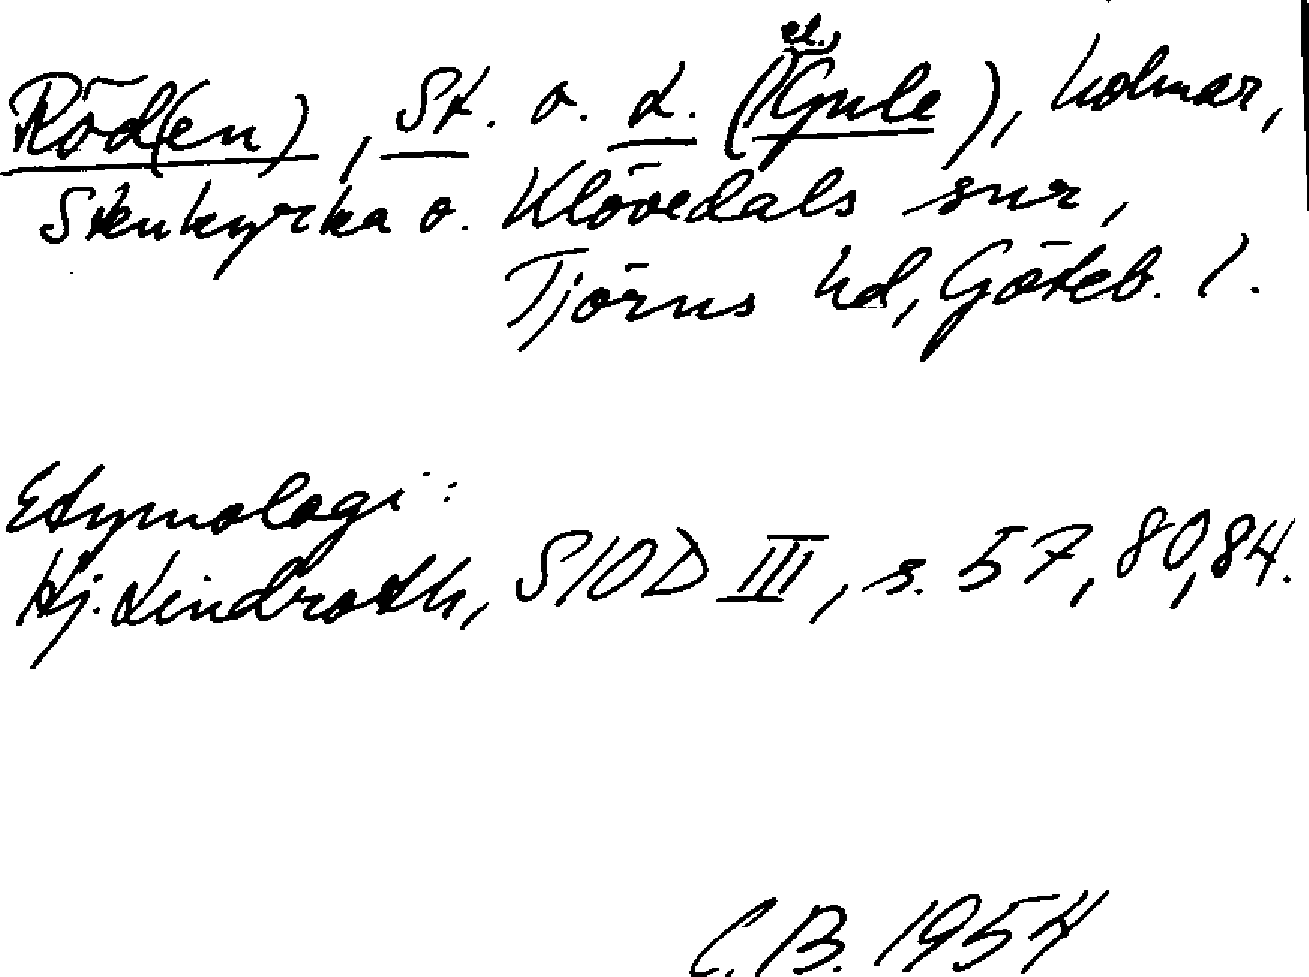 Röd(en), St. o. L. (el. Gule), holmar,
Stenkyrka o. Klövedals snr,
Tjörns hd, Göteb. l.
Etymologi:
Hj. Lindroth, SIOD III, s. 57, 80, 84.
C.B. 1954